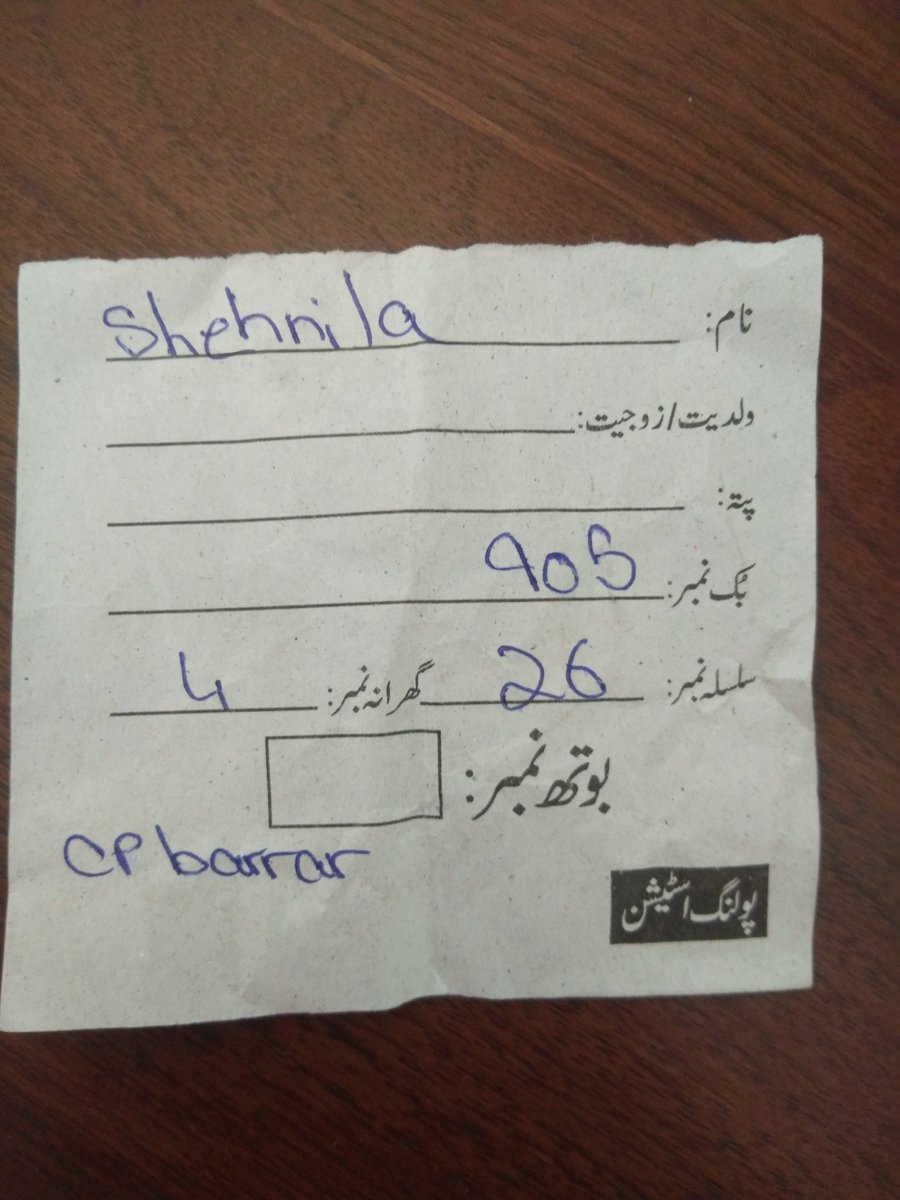 نام: Shehnila
ولدیت/زوجیت:
پتہ:
بک نمبر: 905
سلسلہ نمبر: 26 گھرانہ نمبر: 4
بوتھ نمبر:
CP barrar
پولنگ اسٹیشن